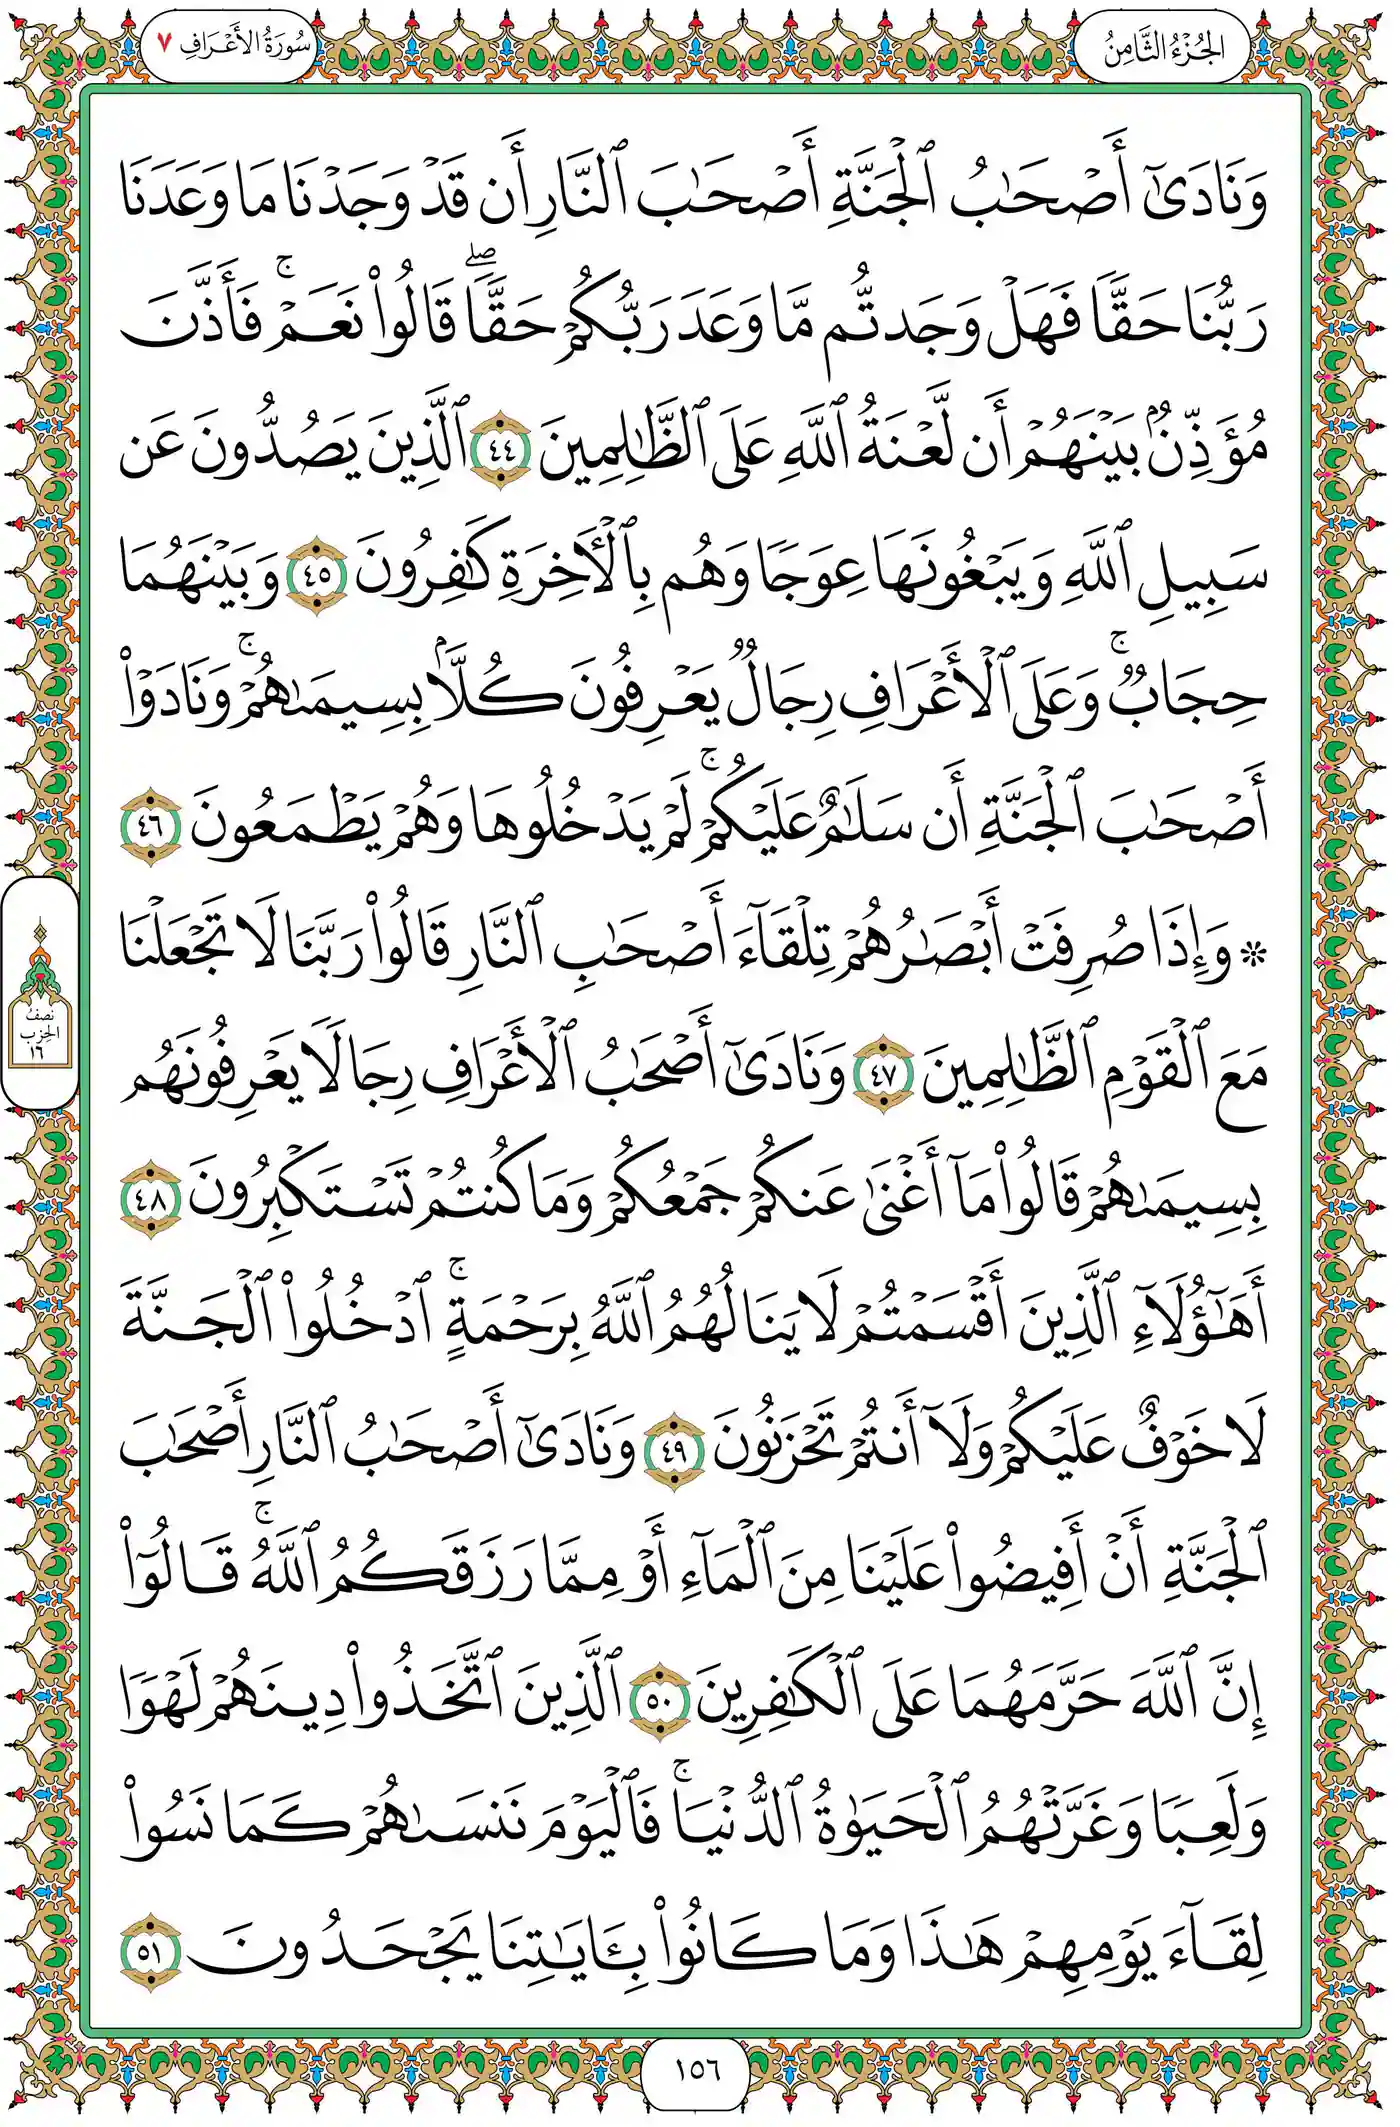 الجُزْءُ الثَّامِنُ
سُورَةُ الأَعْرَافِ ٧
وَنَادَىٰٓ أَصْحَٰبُ ٱلْجَنَّةِ أَصْحَٰبَ ٱلنَّارِ أَن قَدْ وَجَدْنَا مَا وَعَدَنَا
رَبُّنَا حَقًّا فَهَلْ وَجَدتُّم مَّا وَعَدَ رَبُّكُمْ حَقًّا ۖ قَالُوا۟ نَعَمْ ۚ فَأَذَّنَ
مُؤَذِّنٌۢ بَيْنَهُمْ أَن لَّعْنَةُ ٱللَّهِ عَلَى ٱلظَّٰلِمِينَ ٤٤ ٱلَّذِينَ يَصُدُّونَ عَن
سَبِيلِ ٱللَّهِ وَيَبْغُونَهَا عِوَجًا وَهُم بِٱلْـَٔاخِرَةِ كَٰفِرُونَ ٤٥ وَبَيْنَهُمَا
حِجَابٌ ۚ وَعَلَى ٱلْأَعْرَافِ رِجَالٌ يَعْرِفُونَ كُلًّۢا بِسِيمَىٰهُمْ ۚ وَنَادَوْا۟
أَصْحَٰبَ ٱلْجَنَّةِ أَن سَلَٰمٌ عَلَيْكُمْ ۚ لَمْ يَدْخُلُوهَا وَهُمْ يَطْمَعُونَ ٤٦
۞ وَإِذَا صُرِفَتْ أَبْصَٰرُهُمْ تِلْقَآءَ أَصْحَٰبِ ٱلنَّارِ قَالُوا۟ رَبَّنَا لَا تَجْعَلْنَا
مَعَ ٱلْقَوْمِ ٱلظَّٰلِمِينَ ٤٧ وَنَادَىٰٓ أَصْحَٰبُ ٱلْأَعْرَافِ رِجَالًا يَعْرِفُونَهُم
بِسِيمَىٰهُمْ قَالُوا۟ مَآ أَغْنَىٰ عَنكُمْ جَمْعُكُمْ وَمَا كُنتُمْ تَسْتَكْبِرُونَ ٤٨
أَهَٰٓؤُلَآءِ ٱلَّذِينَ أَقْسَمْتُمْ لَا يَنَالُهُمُ ٱللَّهُ بِرَحْمَةٍ ۚ ٱدْخُلُوا۟ ٱلْجَنَّةَ
لَا خَوْفٌ عَلَيْكُمْ وَلَآ أَنتُمْ تَحْزَنُونَ ٤٩ وَنَادَىٰٓ أَصْحَٰبُ ٱلنَّارِ أَصْحَٰبَ
ٱلْجَنَّةِ أَنْ أَفِيضُوا۟ عَلَيْنَا مِنَ ٱلْمَآءِ أَوْ مِمَّا رَزَقَكُمُ ٱللَّهُ ۚ قَالُوٓا۟
إِنَّ ٱللَّهَ حَرَّمَهُمَا عَلَى ٱلْكَٰفِرِينَ ٥٠ ٱلَّذِينَ ٱتَّخَذُوا۟ دِينَهُمْ لَهْوًا
وَلَعِبًا وَغَرَّتْهُمُ ٱلْحَيَوٰةُ ٱلدُّنْيَا ۚ فَٱلْيَوْمَ نَنسَىٰهُمْ كَمَا نَسُوا۟
لِقَآءَ يَوْمِهِمْ هَٰذَا وَمَا كَانُوا۟ بِـَٔايَٰتِنَا يَجْحَدُونَ ٥١
نصف
الحزب
١٦
١٥٦